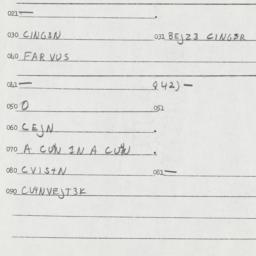 021 —
030 CINGƐN 031 BEJZƐ CINGƐR
040 FAR VUS
041 — 042) —
050 O 051
060 CEJN
070 A CUN IN A CUN
080 CVISTN 081 —
090 CUNVEJTƐK